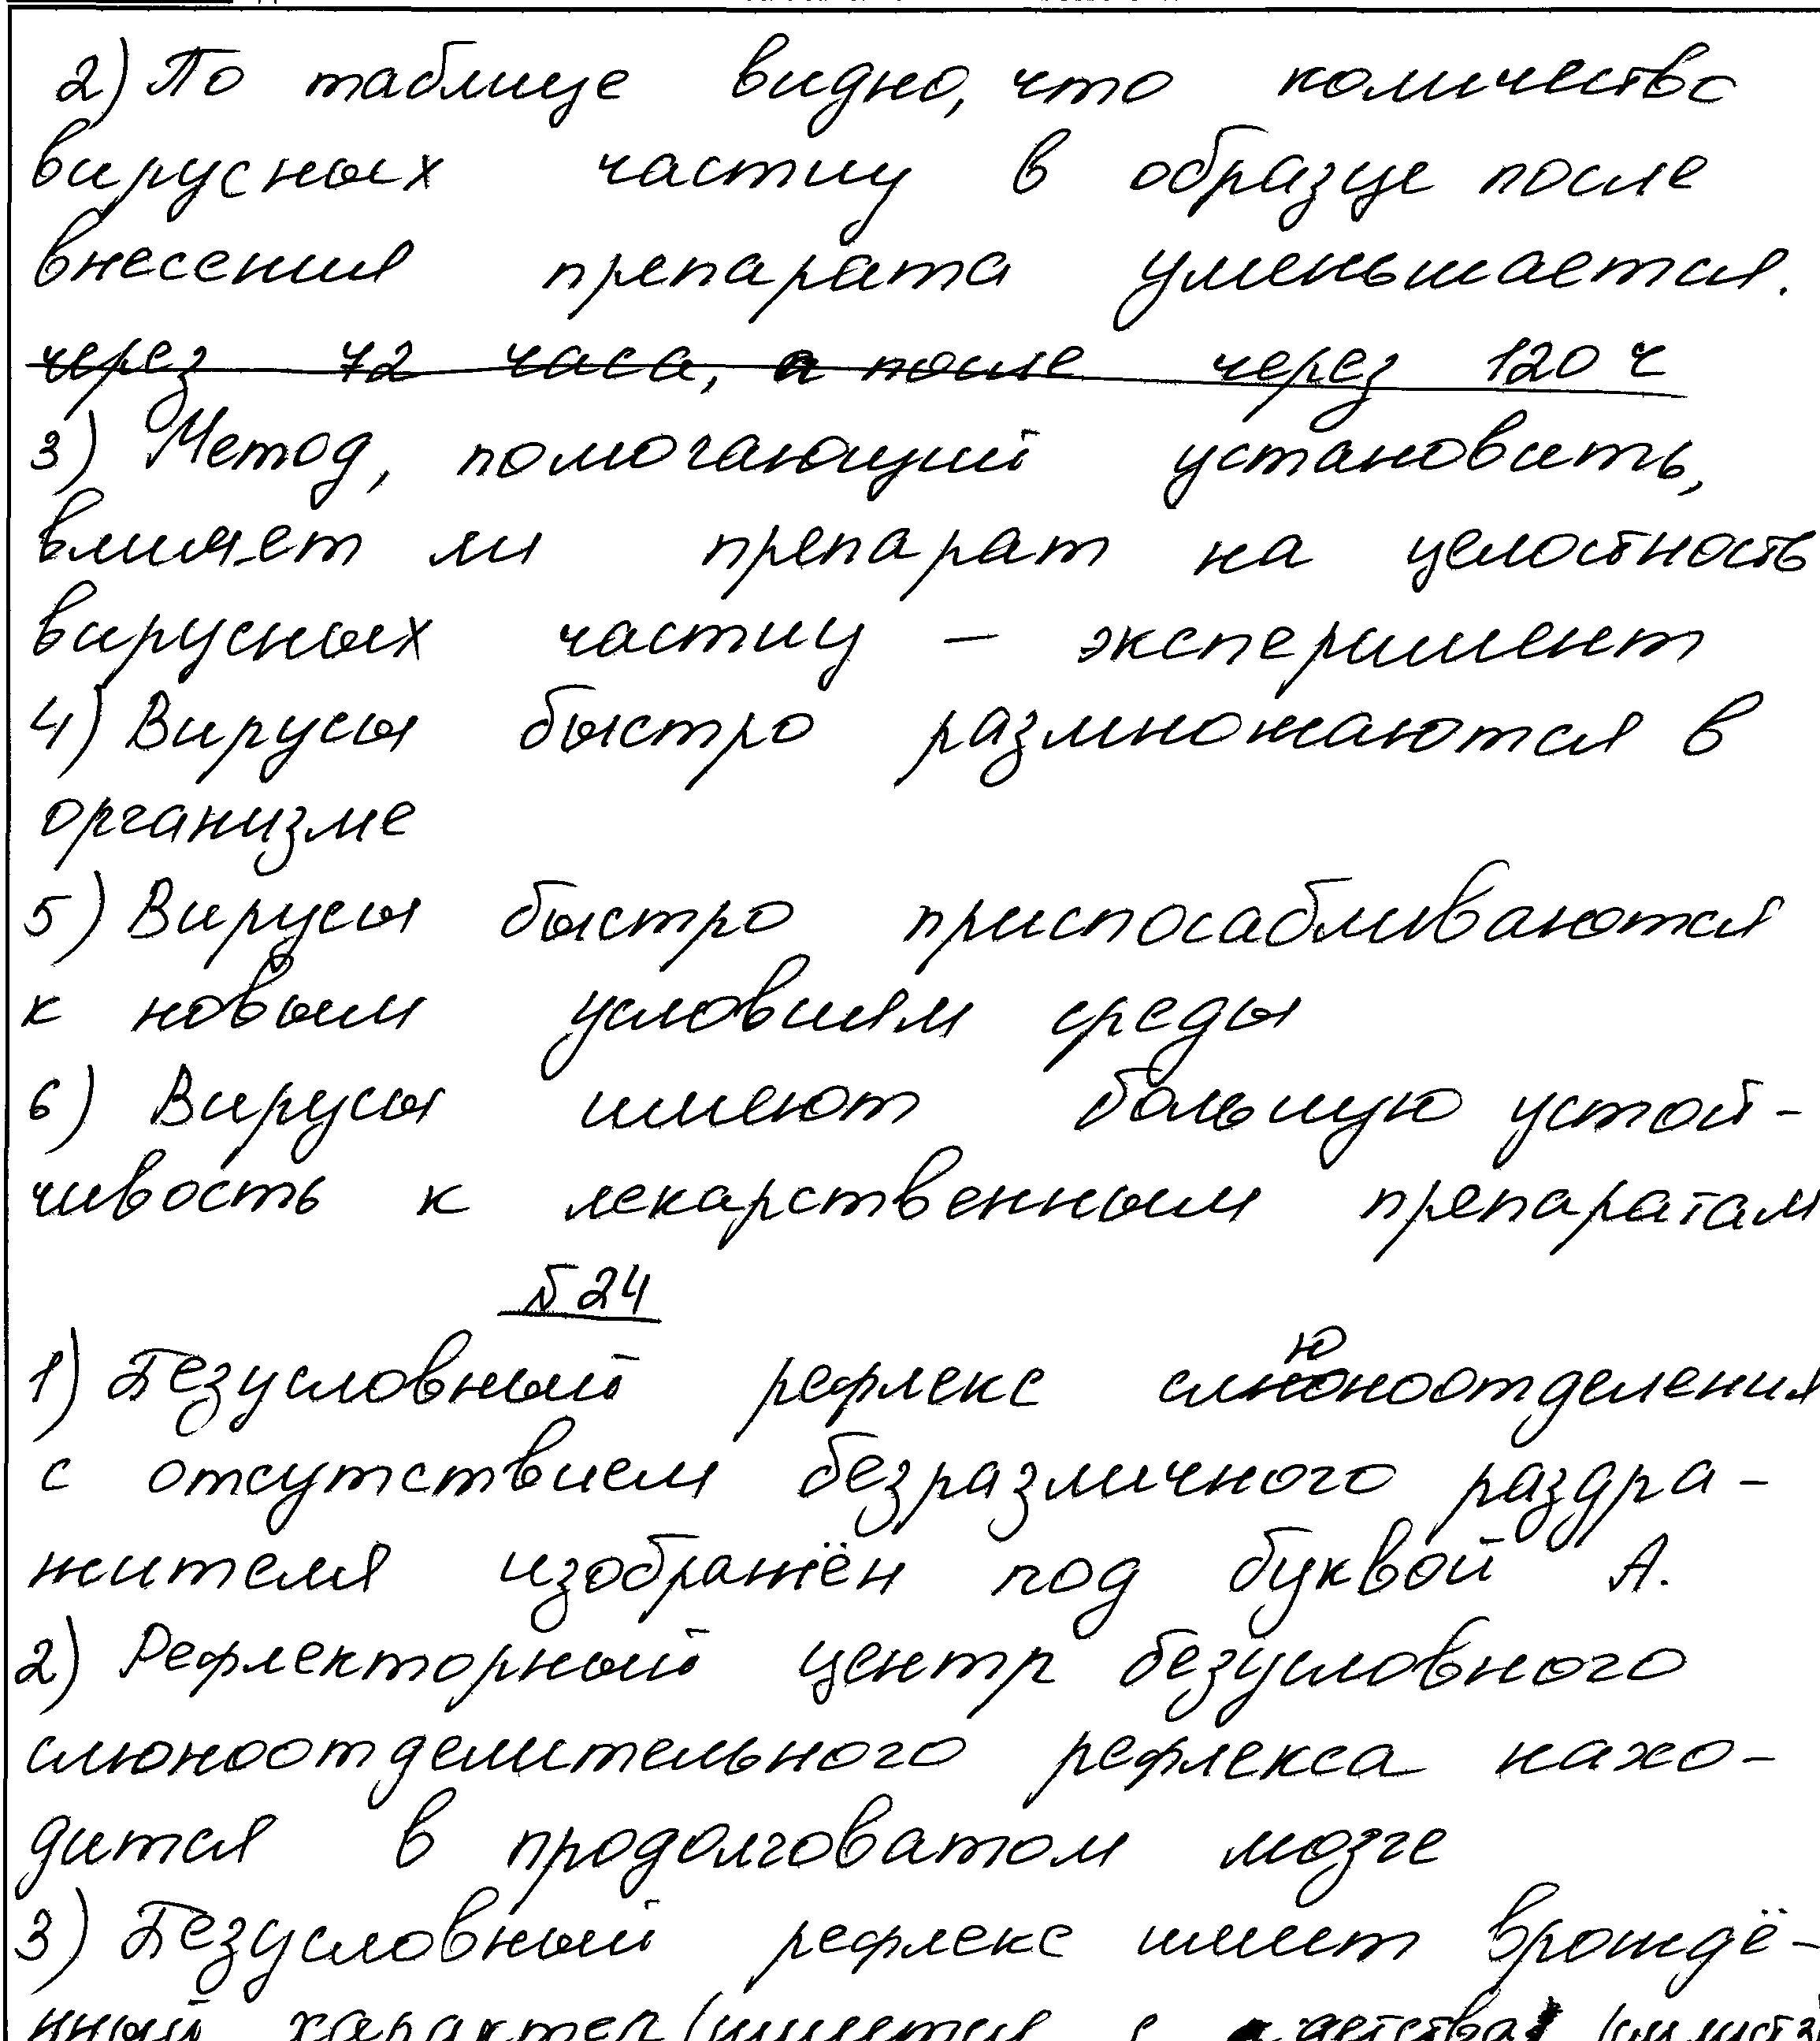 2) По таблице видно, что количество
вирусных частиц в образце после
внесения препарата уменьшается.
через 72 часа, а после через 120 ч
3) Метод, помогающий установить,
влияет ли препарат на целостность
вирусных частиц – эксперимент
4) Вирусы быстро размножаются в
организме
5) Вирусы быстро приспосабливаются
к новым условиям среды
6) Вирусы имеют большую устой-
чивость к лекарственным препаратам
№24
1) Безусловный рефлекс слюноотделения
с отсутствием безразличного раздра-
жителя изображён под буквой А.
2) Рефлекторный центр безусловного
слюноотделительного рефлекса нахо-
дится в продолговатом мозге
3) Безусловный рефлекс имеет врождё-
нный характер (имеется с детства